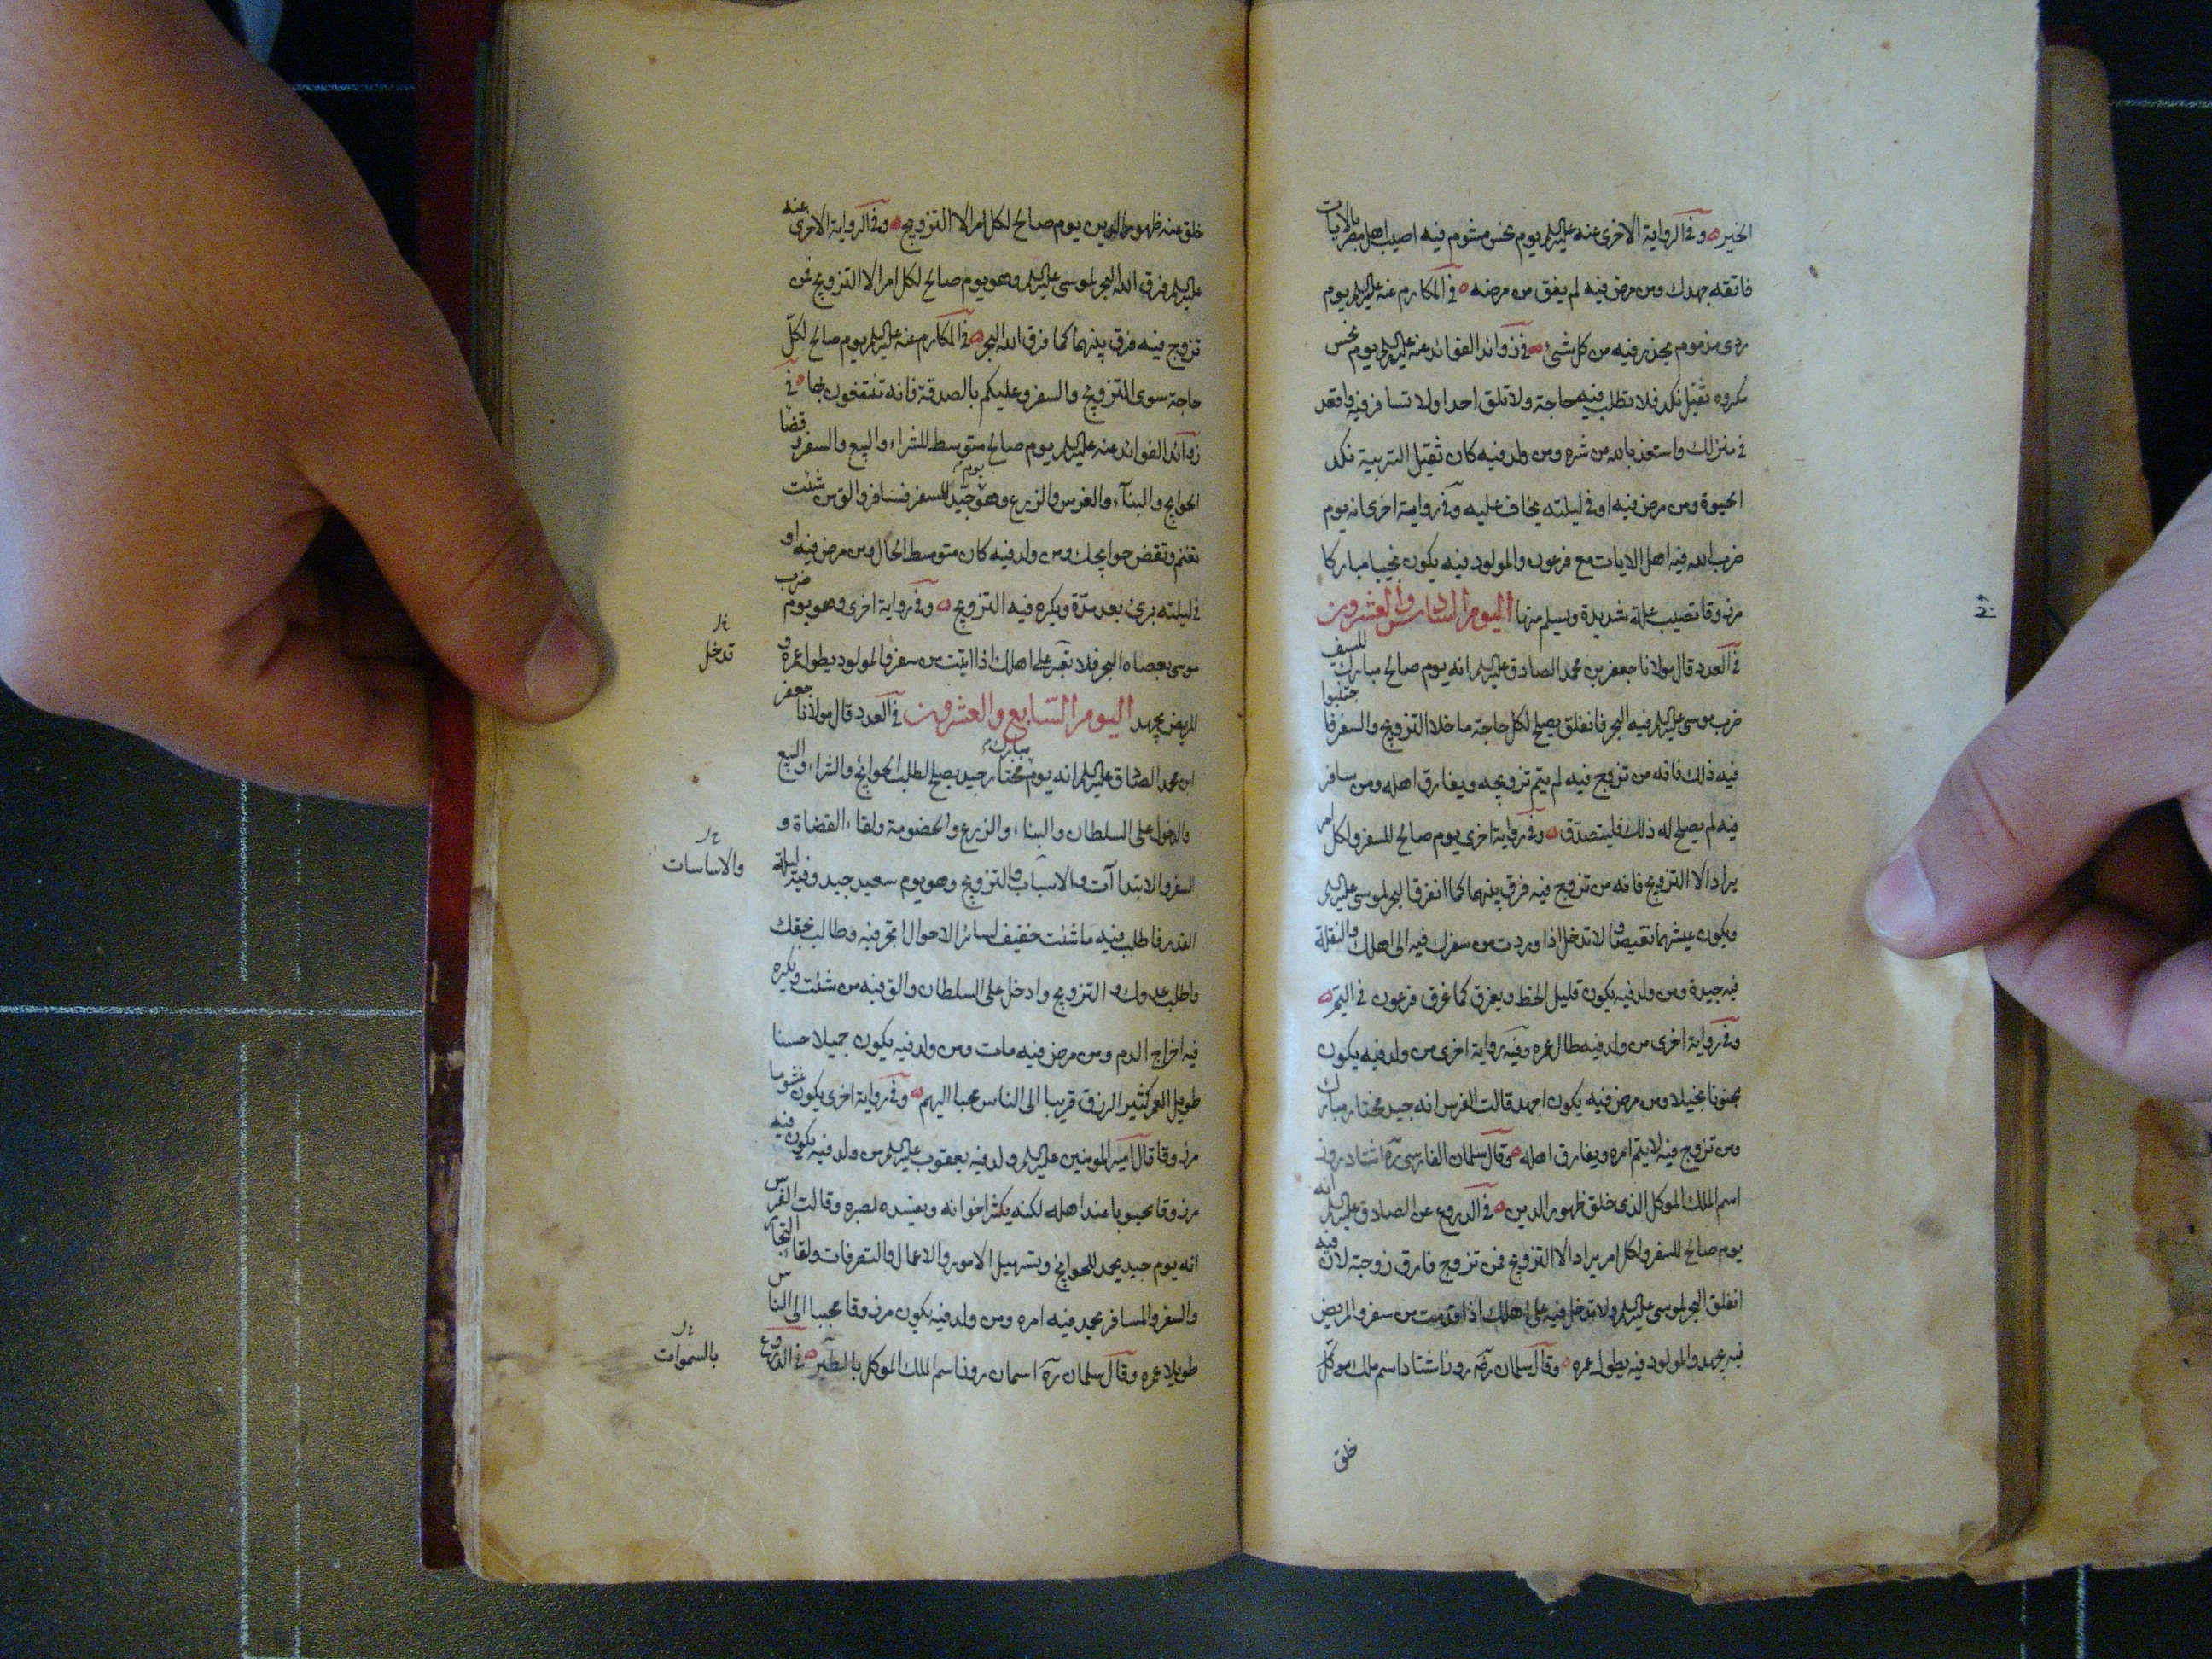 الخير وفي الرواية الاخرى عنه عليه السلام يوم نحس مشوم فيه اصيب اهل مصر بالآيات
فاتقه جهدك ومن مرض فيه لم يفق من مرضه في المكارم عنه عليه السلام يوم
ردى مذموم يحذر فيه من كل شىء في زوائد الفوائد عنه عليه السلام يوم نحس
مكروه ثقيل نكد فلا تطلب فيه حاجة ولا تلق احدا ولا تسافر فيه واقعد
في منزلك واستعذ بالله من شره ومن ولد فيه كان ثقيل التربية نكد
الحيوة ومن مرض فيه او في ليلته يخاف عليه وفي رواية اخرى انه يوم
ضرب الله فيه اهل الايات مع فرعون والمولود فيه يكون نجيبا مباركا
مرزوقا تصيبه علة شديدة ويسلم منها اليوم السادس والعشرون
في العدد قال مولانا جعفر بن محمد الصادق عليه السلام انه يوم صالح مبارك للسيف
ضرب موسى عليه السلام فيه البحر فانفلق يصلح لكل حاجة ما خلا التزويج والسفر فاجتنبوا
فيه ذلك فانه من تزوج فيه لم يتم تزويجه ويفارق اهله ومن سافر
فيه لم يصلح له ذلك فليتصدق وفي رواية اخرى يوم صالح للسفر ولكل امر
يراد الا التزويج فانه من تزوج فيه فرق بينهما كما انفرق البحر لموسى عليه السلام
ويكون عيشهما نغيصا ولا تدخل اذا وردت من سفرك فيه الى اهلك والنقلة
فيه جيدة ومن ولد فيه يكون قليل الحظ ويغرق كما غرق فرعون في اليم
وفي رواية اخرى من ولد فيه طال عمره وفيه رواية اخرى من ولد فيه يكون
مجنونا بخيلا ومن مرض فيه يكون اجهد قالت الفرس انه جيد مختار مبارك
ومن تزوج فيه لا يتم امره ويفارق اهله وقال سلمان الفارسي ره اشتاد روز
اسم الملك الموكل الذى خلق ظهور الدين في الدروع عن الصادق عليه السلام انه
يوم صالح للسفر ولكل امر يراد الا التزويج فمن تزوج فارق زوجته لان فيه
انفلق البحر لموسى عليه السلام ولا تدخل فيه على اهلك اذا قدمت من سفر والمريض
فيه يجهد والمولود فيه يطول عمره وقال سلمان رضه روز اشتاد اسم ملك موكل
خلق
خلق عنه ظهور الدين يوم صالح لكل امر الا التزويج وفي الرواية الاخرى عنه
عليه السلام فرق الله البحر لموسى عليه السلام وهو يوم صالح لكل امر الا التزويج فمن
تزوج فيه فرق بينهما كما فرق الله البحر في المكارم عنه عليه السلام يوم صالح لكل
حاجة سوى التزويج والسفر وعليكم بالصدقة فانه تنتفعون بها في
زوائد الفوائد عنه عليه السلام يوم صالح متوسط للشراء والبيع والسفر وقضا
الحوايج والبناء والغرس والزرع وهو يوم جيد للسفر فسافر والق من شئت
تغنم وتقض حوايجك ومن ولد فيه كان متوسط الحال ومن مرض فيه او
في ليلته برئ بعد مدة ويكره فيه التزويج وفي رواية اخرى وهو يوم ضرب
موسى بعصاه البحر فلا تعبر على اهلك اذا اتيت من سفر والمولود يطول عمره و
تدخل
المريض يجهد اليوم السابع والعشرون في العدد قال مولانا جعفر
ابن محمد الصادق عليه السلام انه يوم مختار مبارك جيد يصلح لطلب الحوايج والشراء والبيع
والدخول على السلطان والبناء والزرع والخصومة ولقاء القضاة و
السفر والابتداآت والاسباب والتزويج وهو يوم سعيد جيد وفيه ليلة
والاساسات
القدر فاطلب فيه ما شئت خفيف لسائر الاحوال اتجر فيه وطالب بحقك
واطلب عدوك و التزويج وادخل على السلطان والق فيه من شئت ويكره
فيه اخراج الدم ومن مرض فيه مات ومن ولد فيه يكون جميلا حسنا
طويل العمر كثير الرزق قريبا الى الناس محببا اليهم وفي رواية اخرى يكون غشوما
مرزوقا قال امير المومنين عليه السلام ولد فيه يعقوب عليه السلام من ولد فيه يكون فيه
مرزوقا محبوبا عند اهله لكنه يكثر اخوانه ويفسده بصره وقالت الفرس
انه يوم جيد يحمد للحوايج وتسهيل الامور والاعمال والتصرفات ولقاء التجار
والسفر والمسافر يحمد فيه امره ومن ولد فيه يكون مرزوقا محببا الى الناس
طويلا عمره وقال سلمان ره اسمان روز اسم الملك الموكل بالطير في الدروع
بالسموات